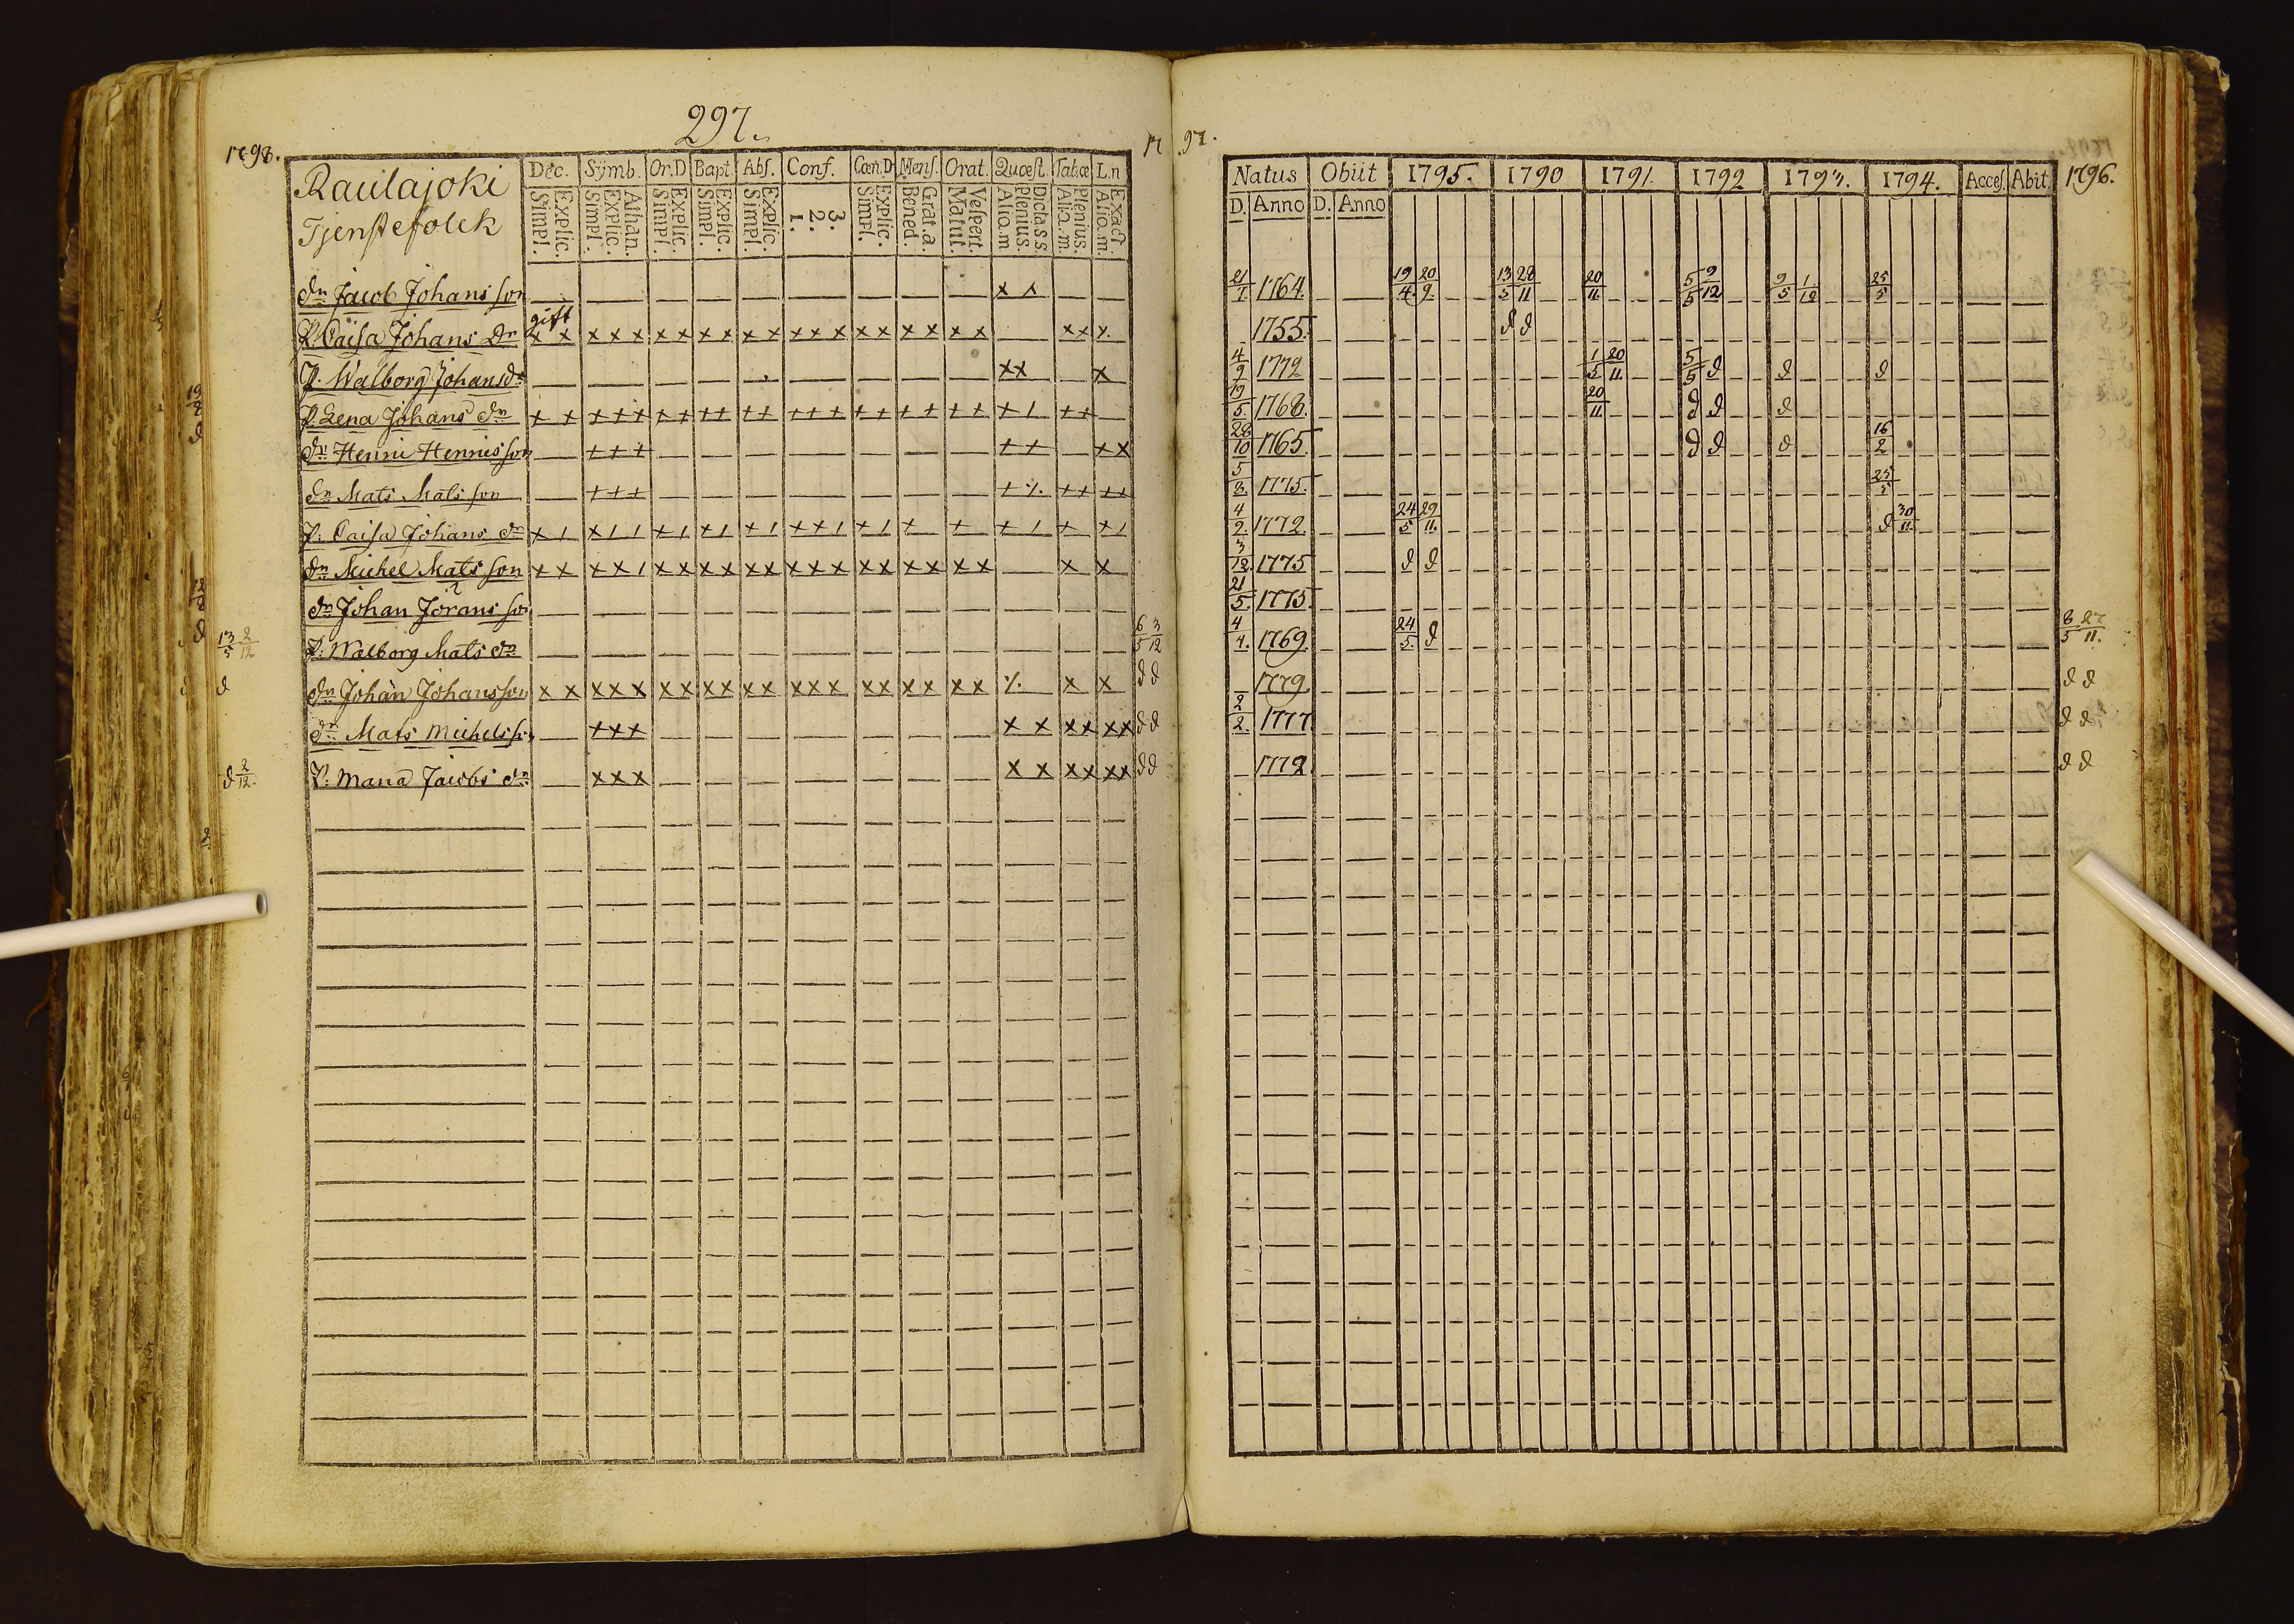 297.
1798.
17 97.
Raulajoki
Tjenstefolck
Dec. Symb. Or.D Bapt. Abs. Conf. Cœn.D Mens. Orat. Quœst. Tab.œ L.n
Explic. Simpl. Athan. Explic. Simpl. Explic. Simpl. Explic. Simpl. Explic. Simpl. 3. 2. 1. Explic. Simpl. Grat.a. Bened. Vespert. Matut. Dicta.s.s. Plenius. Aliq.m Plenius. Aliq.m. Exact Aliq.m.
Natus Obiit 1795. 1790 1791. 1792 1793. 1794. Acces. Abit. 1796.
D. Anno D. Anno
dn Jacob Johans son x x 21/7 1764. 19/4 20/9 13/5 28/11 20/11 5/5 9/12 9/5 1/12 25/5
gift
P. Caisa Johans dr x x x x x x x x x x x x x x x x x x x x x x x x 1755. d d
P. Walborg Johansdr x x x 4/9 1772 1/5 20/11 5/5 d d d
P. Lena Johans dr + + + + + + + + + + + + + + + + + + + + + 1 + + 19/5 1768. 20/11 d d d
dn Henric Henricsson + + + + + + x 28/10 1765 d d d 16/2
dn Mats Mats son + + + + ·/. + + + + 5/8 1775. 25/5
P. Caisa Johans dr 4/9 1772 24/5 29/11 d 30/11
dn Michel Mats son x x x x 1 x x x x x x x x x x x x x x x x x x 3/12 1775 d d
dn Johan Jörans son 21/5 1775
13/5 2/12 P. Walborg Mats dr 6/5 3/12 4/4 1769 24/5 d 8/5 27/11
d dn Johan Johansson x x x x x x x x x x x x x x x x x x x x ·/. x x d d 1779 d d
dn Mats Michelsson + + + x x x x x x d d 2/2 1777 d d
d 2/12 P. Maria Jacobs dr x x x x x x x x x d d 1772 d d